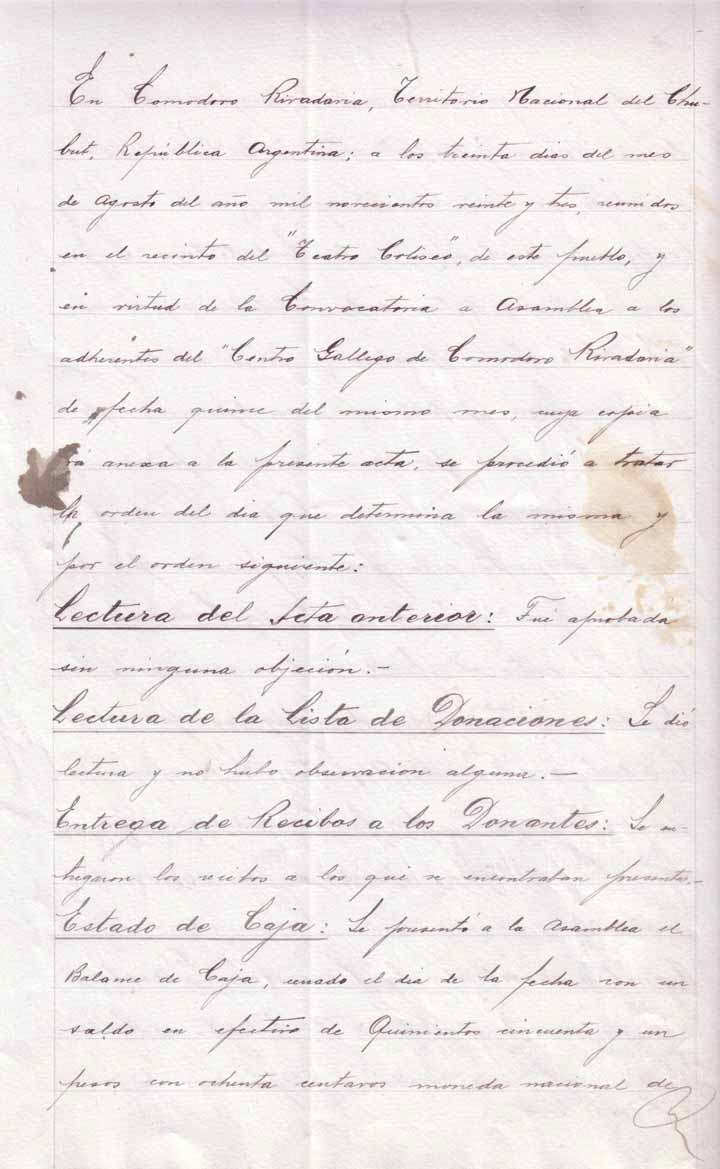 En Comodoro Rivadavia, Territorio Nacional del Chu-
but, República Argentina; a los treinta dias del mes
de Agosto del año mil novecientos veinte y tres, reunidos
en el recinto del "Teatro Coliseo", de este pueblo, y
en virtud de la Convocatoria a Asamblea a los
adherentes del "Centro Gallego de Comodoro Rivadavia"
de fecha quince del mismo mes, cuya copia
rá anexa a la presente acta, se procedió a tratar
la orden del dia que determina la misma y
por el orden siguiente:
Lectura del Acta anterior: Fué aprobada
sin ninguna objeción.-
Lectura de la Lista de Donaciones: Se dió
lectura y no hubo observación alguna.-
Entrega de Recibos a los Donantes: Se en-
tregaron los recibos a los que se encontraban presentes.-
Estado de Caja: Se presentó a la Asamblea el
Balance de Caja, cerrado el dia de la fecha con un
saldo en efectivo de Quinientos cincuenta y un
pesos con ochenta centavos moneda nacional de